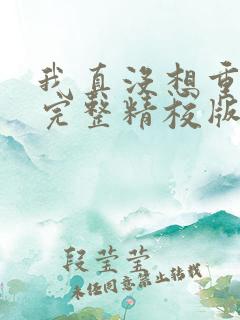 我真没想重
完整精校版
段莹莹
未经同意禁止转载